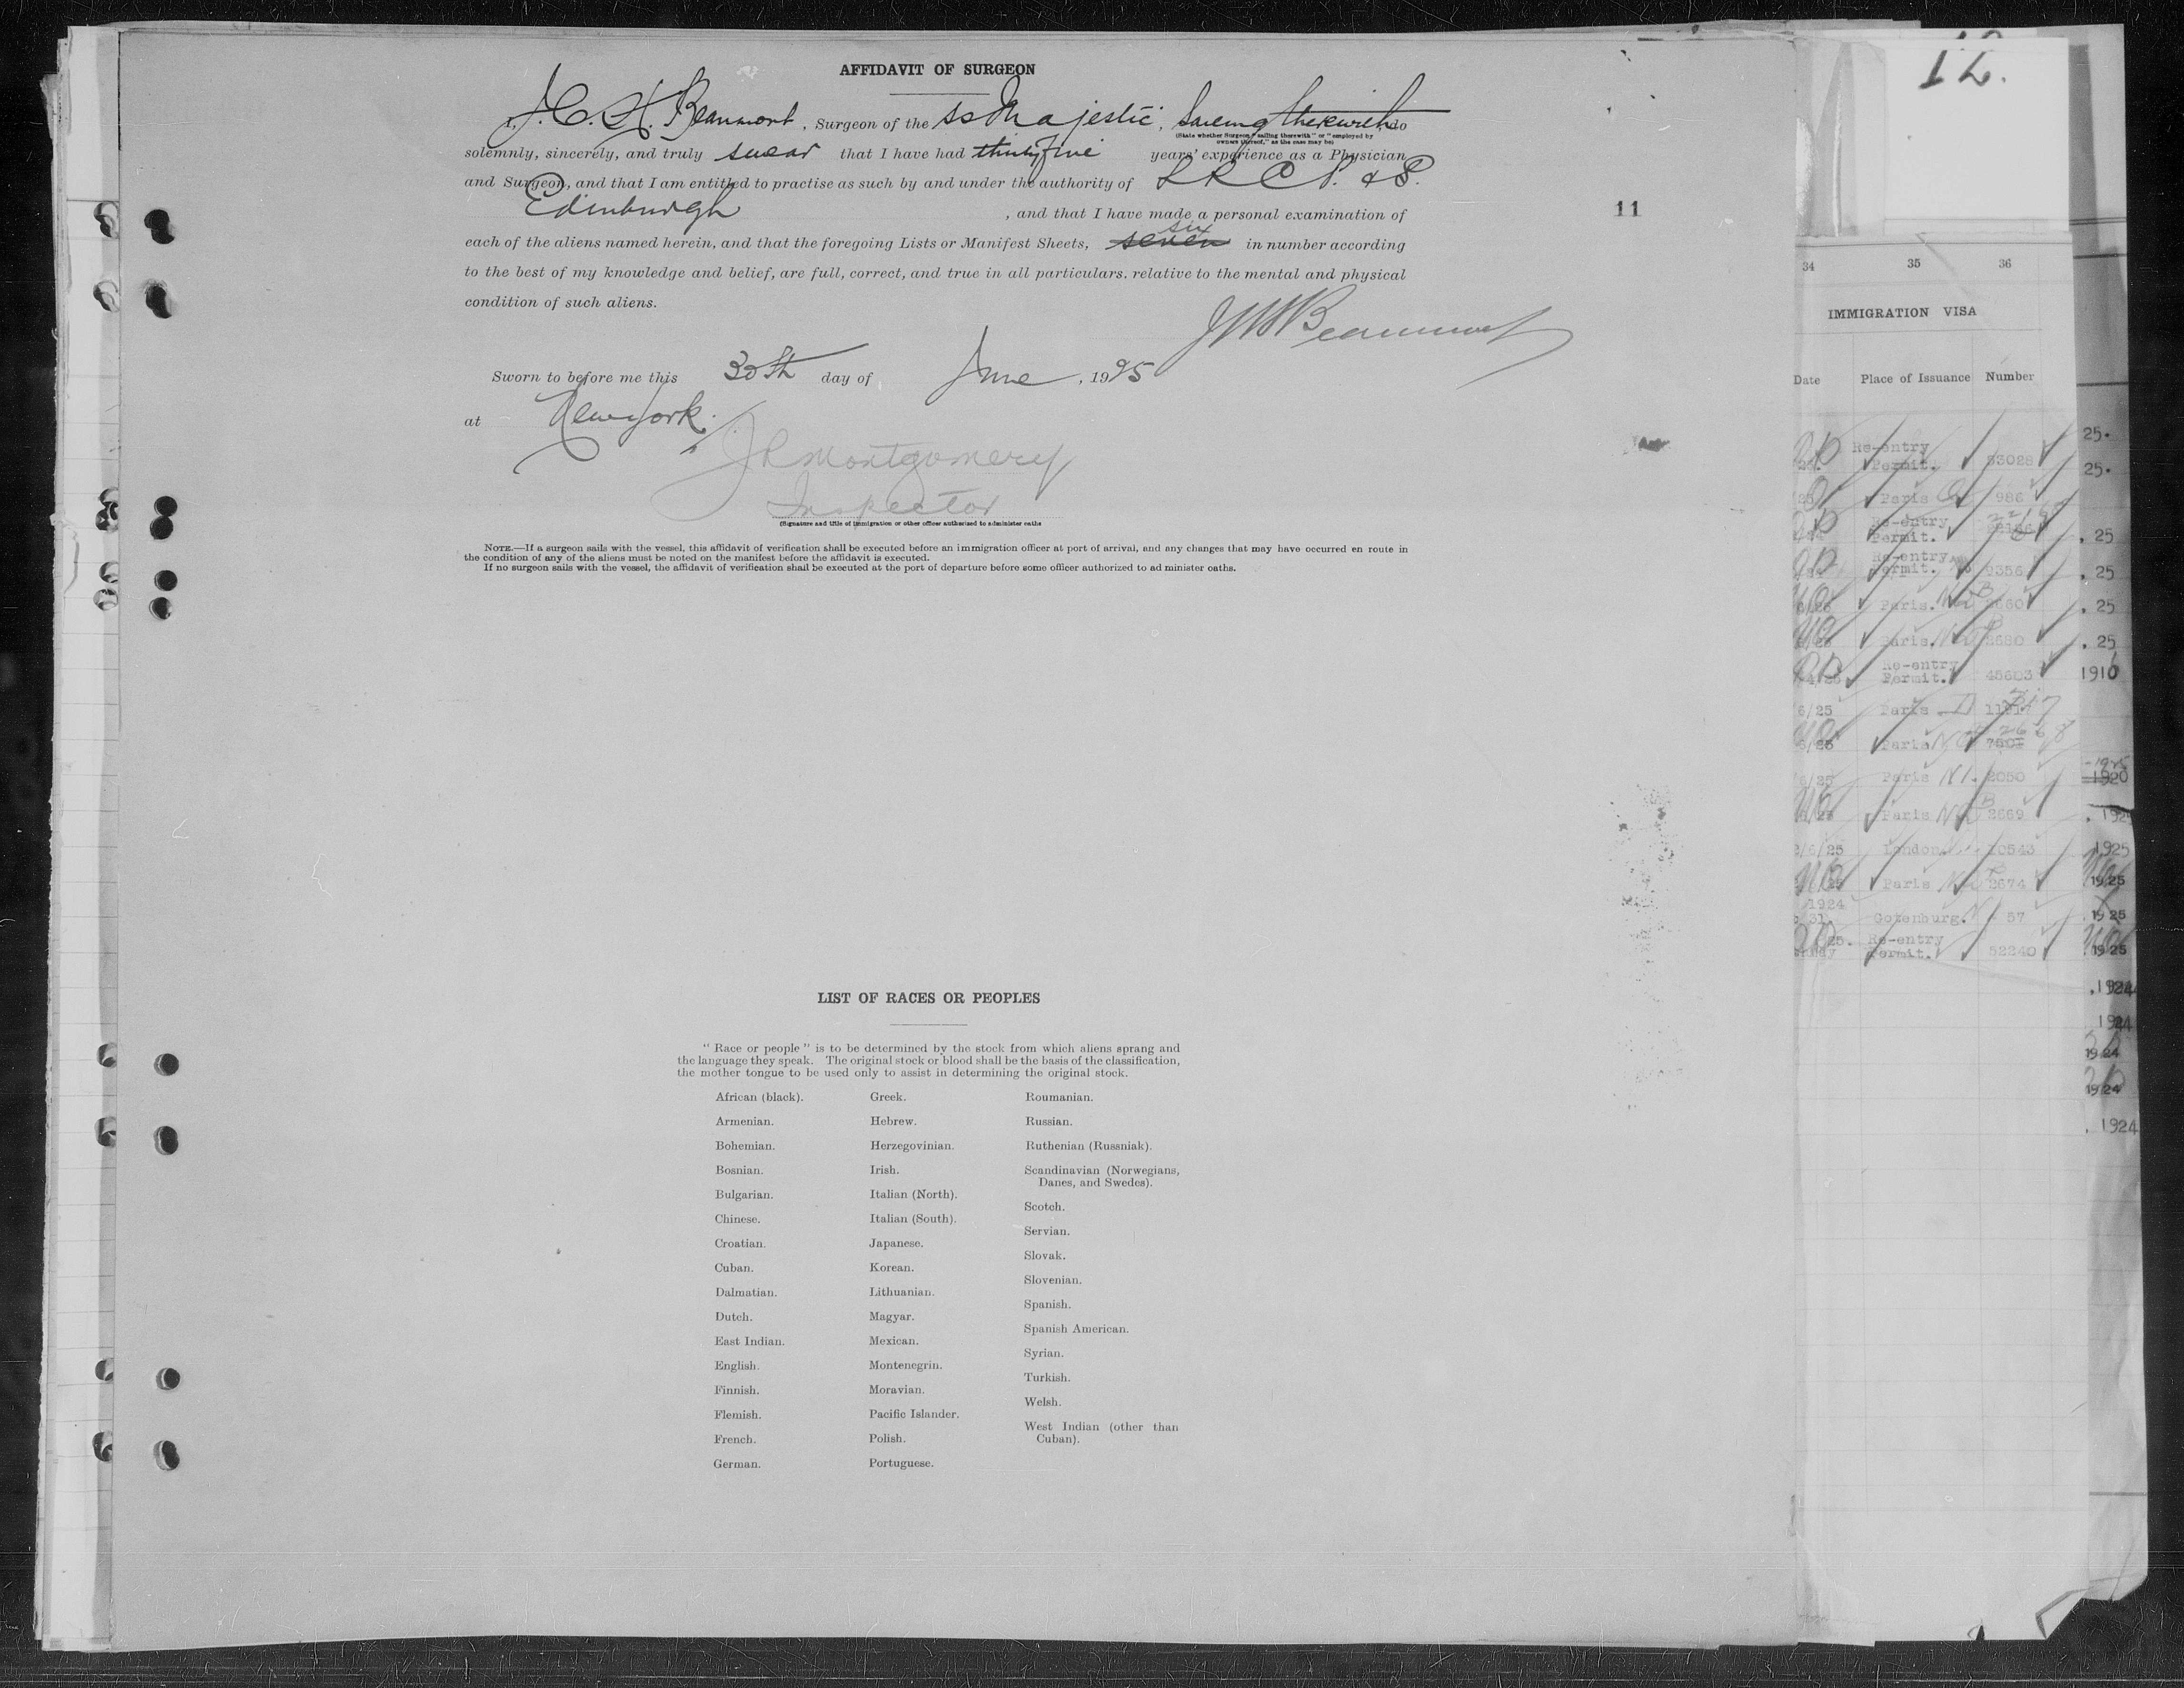 AFFIDAVIT OF SURGEON
I, J. C. H. Beaumont, Surgeon of the SS Majestic, Sailing therewith do
(State whether Surgeon "sailing therewith" or "employed by
owners thereof," as the case may be)
solemnly, sincerely, and truly swear that I have had thirty five years' experience as a Physician
and Surgeon, and that I am entitled to practise as such by and under the authority of L R C P. & S.
Edinburgh, and that I have made a personal examination of
six
each of the aliens named herein, and that the foregoing Lists or Manifest Sheets, seven in number according
to the best of my knowledge and belief, are full, correct, and true in all particulars. relative to the mental and physical
condition of such aliens.
Beaumont
Sworn to before me this 30th day of June, 1925
at New York.
J R Montgomery
Inspector
(Signature and title of immigration or other officer authorized to administer oaths
NOTE.—If a surgeon sails with the vessel, this affidavit of verification shall be executed before an immigration officer at port of arrival, and any changes that may have occurred en route in
the condition of any of the aliens must be noted on the manifest before the affidavit is executed.
If no surgeon sails with the vessel, the affidavit of verification shall be executed at the port of departure before some officer authorized to ad minister oaths.
11
LIST OF RACES OR PEOPLES
"Race or people" is to be determined by the stock from which aliens sprang and
the language they speak. The original stock or blood shall be the basis of the classification,
the mother tongue to be used only to assist in determining the original stock.
African (black).
Armenian.
Bohemian.
Bosnian.
Bulgarian.
Chinese.
Croatian.
Cuban.
Dalmatian.
Dutch.
East Indian.
English.
Finnish.
Flemish.
French.
German.
Greek.
Hebrew.
Herzegovinian.
Irish.
Italian (North).
Italian (South).
Japanese.
Korean.
Lithuanian.
Magyar.
Mexican.
Montenegrin.
Moravian.
Pacific Islander.
Polish.
Portuguese.
Roumanian.
Russian.
Ruthenian (Russniak).
Scandinavian (Norwegians,
Danes, and Swedes).
Scotch.
Servian.
Slovak.
Slovenian.
Spanish.
Spanish American.
Syrian.
Turkish.
Welsh.
West Indian (other than
Cuban).
12.
34 35 36
IMMIGRATION VISA
Date Place of Issuance Number
Re-entry
Permit. 53028
Paris 986
Re-entry
Permit.
Re-entry
Permit. 9356
Paris. 2660
Paris. 2680
Re-entry
Permit. 45603
6/25 Paris
Paris
6/25 Paris 2050
Paris 2669
/6/25 London 10543
Paris 2674
1924
31 Gotenburg. 57
25. Re-entry
Permit. 52240
25.
25.
. 25
. 25
. 25
. 25
1916
1925
1920
1925
1925
1925
1925
. 1924
1924
1924
1924
. 1924